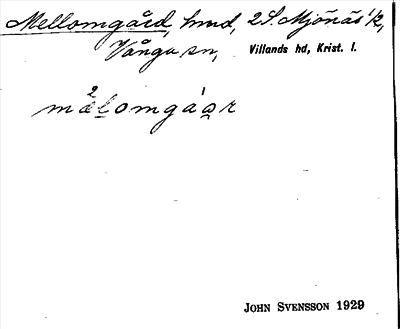 Mellomgård, hmd, 2 S. Mjönäs k,
Vånga sn, Villands hd, Krist. l.
JOHN SVENSSON 1929